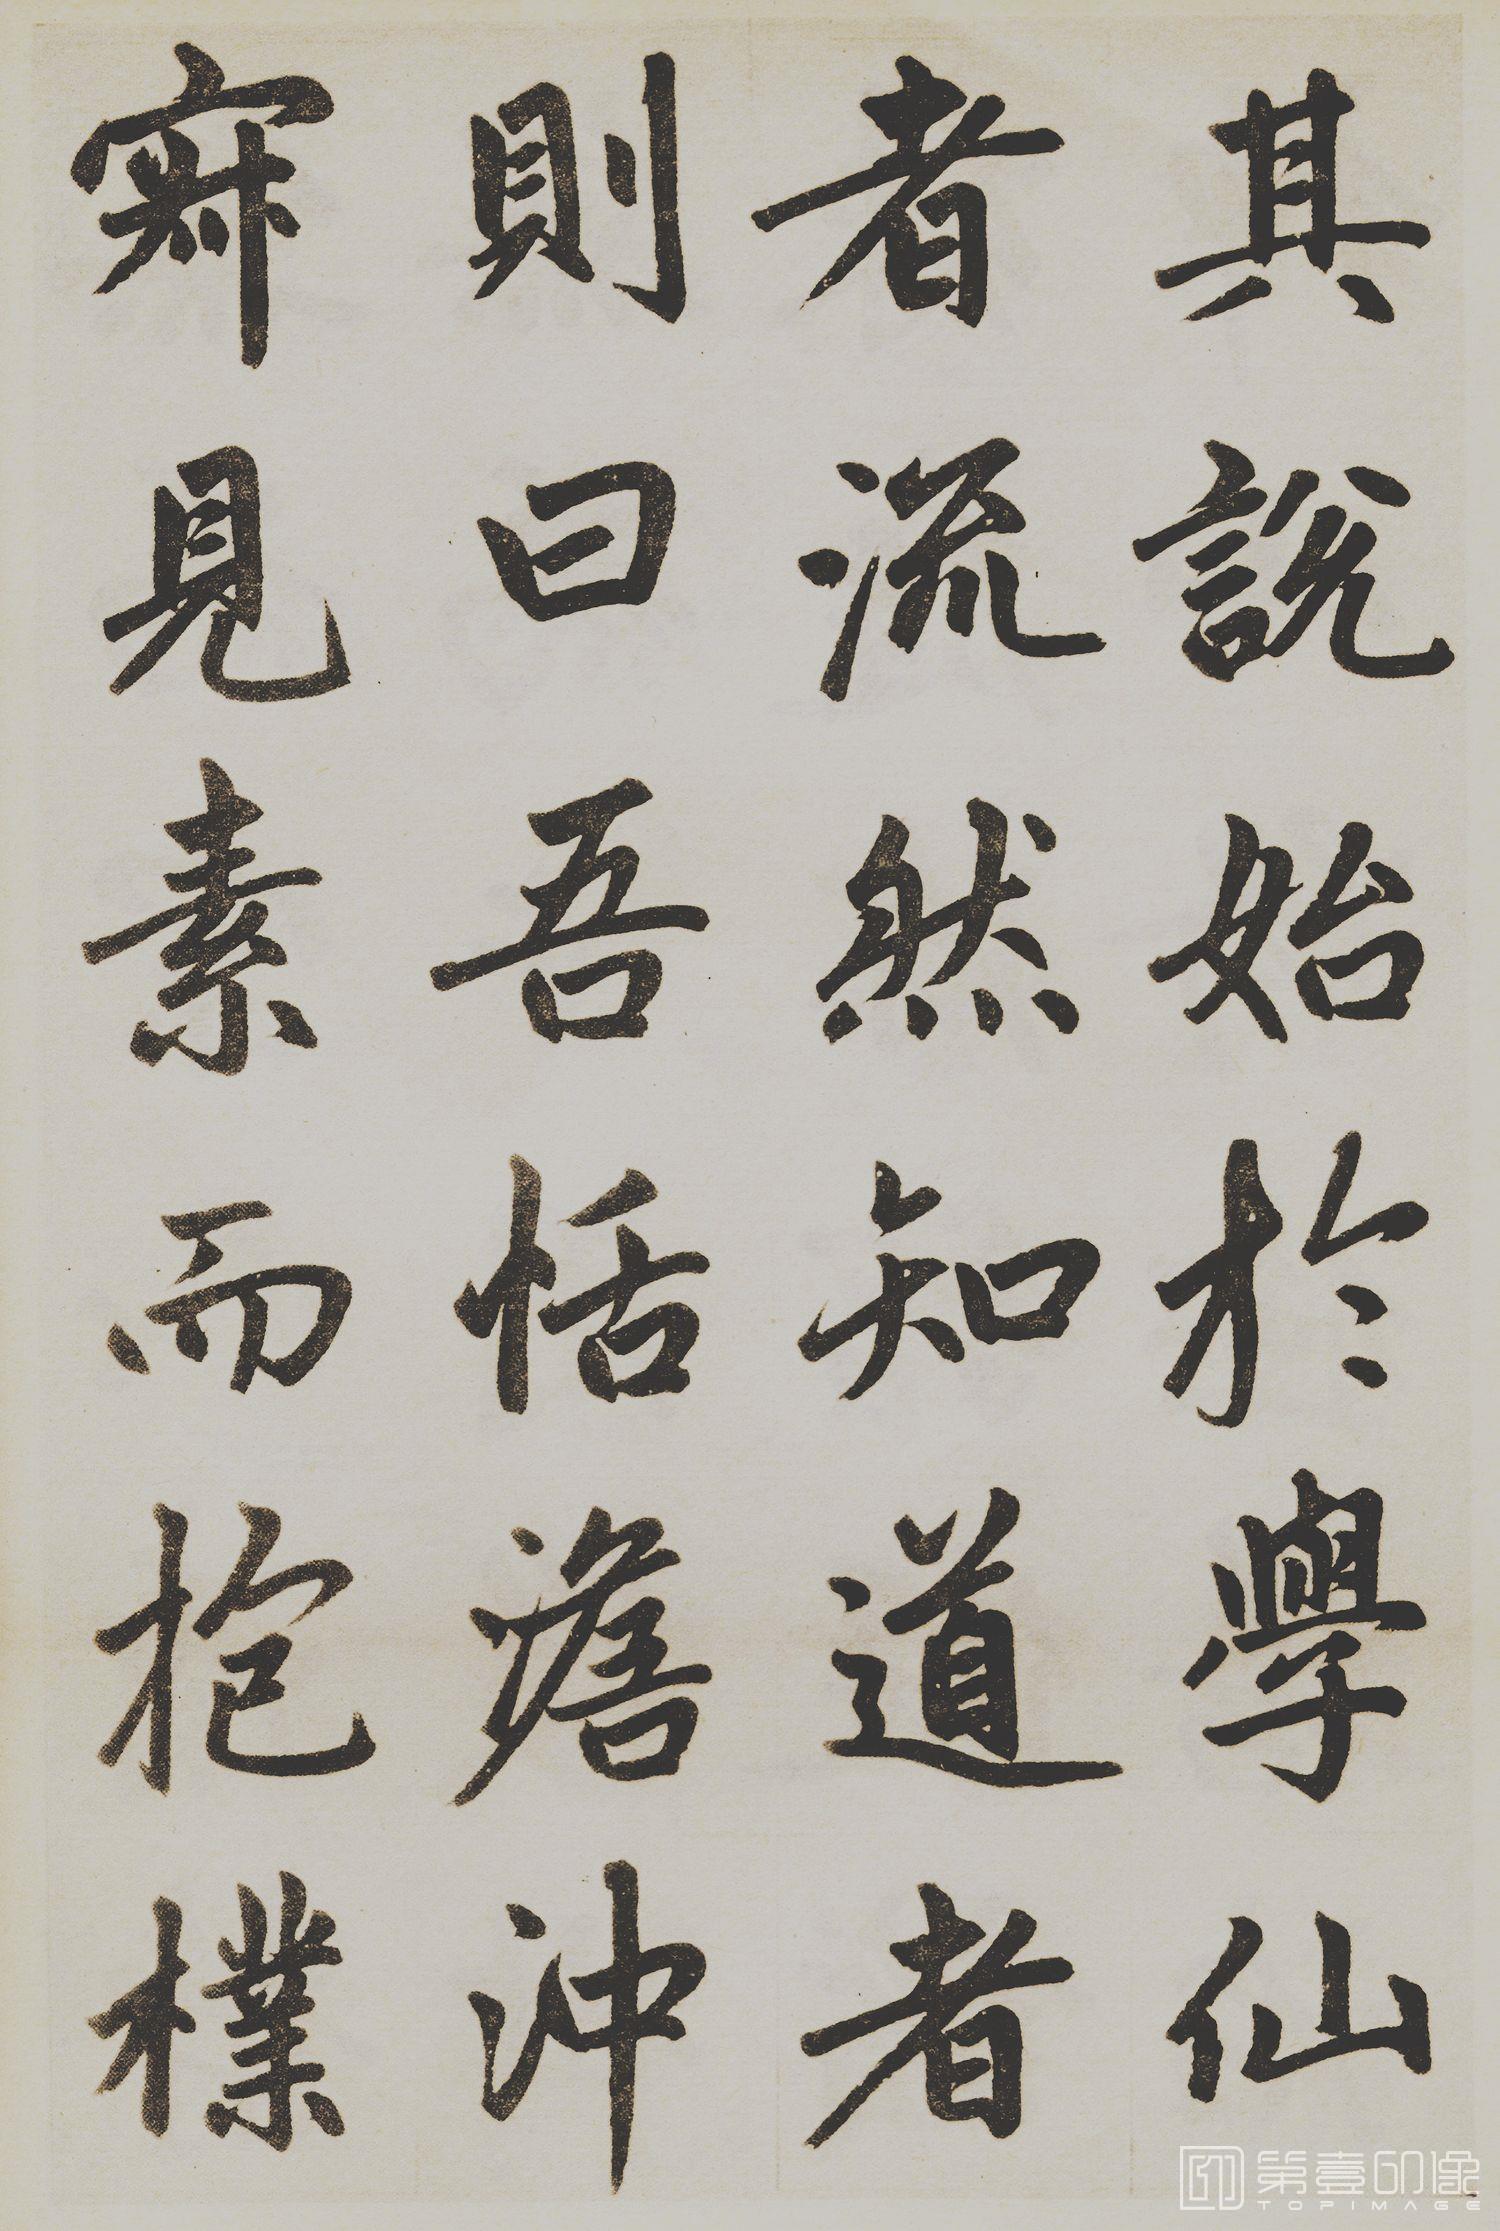 其說始於學仙
者流然知道者
則曰吾恬澹沖
寂見素而抱樸
第壹印像
TOPIMAGE